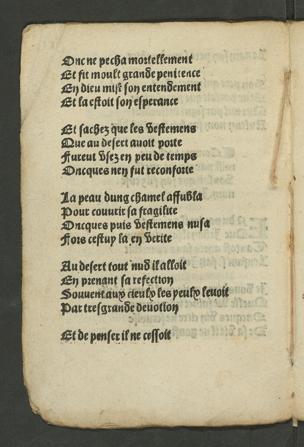 Onc ne pecha mortellement
Et fit moult grande penitence
En dieu mist son entendement
Et la estoit son esperance
Et sachez que les vestemens
Que au desert auoit porte
Furent vsez en peu de temps
Oncques nen fut reconforte
La peau dung chamel affubla
Pour couurir sa fragilite
Oncques puis vestemens nusa
Fors cestuy la en verite
Au desert tout nud il alloit
En prenant sa refection
Souuent aux cieulx les yeulx leuoit
Par tresgrande deuotion
Et de penser il ne cessoit